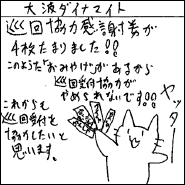 大波ダイナマイト
巡回協力感謝券が
4枚たまりました!!
このような“おみやげ”があるから
巡回受付協力が
やめられないです!!
ヤッター
これからも
巡回受付を
協力したいと
思います。